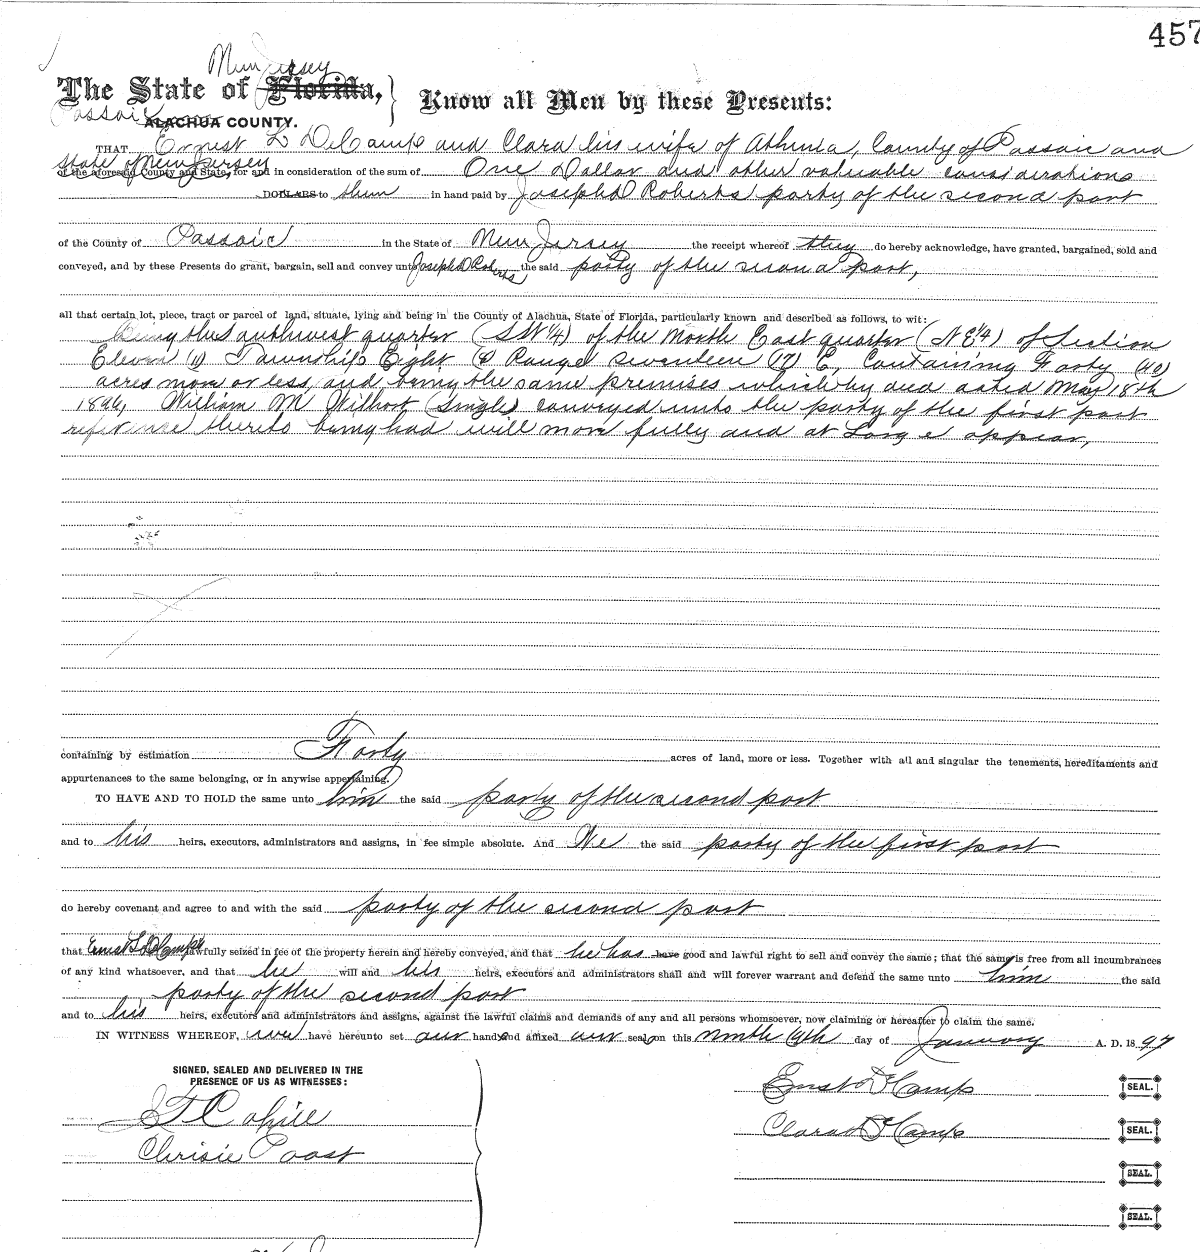 457
New Jersey
The State of Florida,
Know all Men by these Presents:
Passaic
ALACHUA COUNTY.
THAT Ernest L DeCamp and Clara his wife of Athenia, County of Passaic and
State of New Jersey
of the aforesaid County and State, for and in consideration of the sum of One Dollar and other valuable considerations
DOLLARS to them in hand paid by Joseph D Roberts party of the second part
of the County of Passaic in the State of New Jersey the receipt whereof they do hereby acknowledge, have granted, bargained, sold and
conveyed, and by these Presents do grant, bargain, sell and convey unto Joseph D Roberts the said party of the second part,
all that certain lot, piece, tract or parcel of land, situate, lying and being in the County of Alachua, State of Florida, particularly known and described as follows, to wit:
Being the Southwest quarter (SW 1/4) of the North East quarter (NE 1/4) of Section
Eleven (11) Township Eight (8) Range seventeen (17) E, Containing Forty (40)
acres more or less, and being the same premises which by deed dated May 18th
William M (Single) conveyed unto the party of the first part
reference thereto being had will more fully and at Large appear,
containing by estimation Forty acres of land, more or less. Together with all and singular the tenements, hereditaments and
appurtenances to the same belonging, or in anywise appertaining.
TO HAVE AND TO HOLD the same unto him the said party of the second part
and to his heirs, executors, administrators and assigns, in fee simple absolute. And We the said party of the first part
do hereby covenant and agree to and with the said party of the second part
that Ernest L DeCamp is lawfully seized in fee of the property herein and hereby conveyed, and that he has have good and lawful right to sell and convey the same; that the same is free from all incumbrances
of any kind whatsoever, and that he will and his heirs, executors and administrators shall and will forever warrant and defend the same unto him the said
party of the second part
and to his heirs, executors and administrators and assigns, against the lawful claims and demands of any and all persons whomsoever, now claiming or hereafter to claim the same.
IN WITNESS WHEREOF, we have hereunto set our hands and affixed our seals on this Ninth (9th day of January A. D. 1897
SIGNED, SEALED AND DELIVERED IN THE
PRESENCE OF US AS WITNESSES:
Ernest DeCamp SEAL.
Cahill
Clara DeCamp SEAL.
Chrisie Post
SEAL.
SEAL.